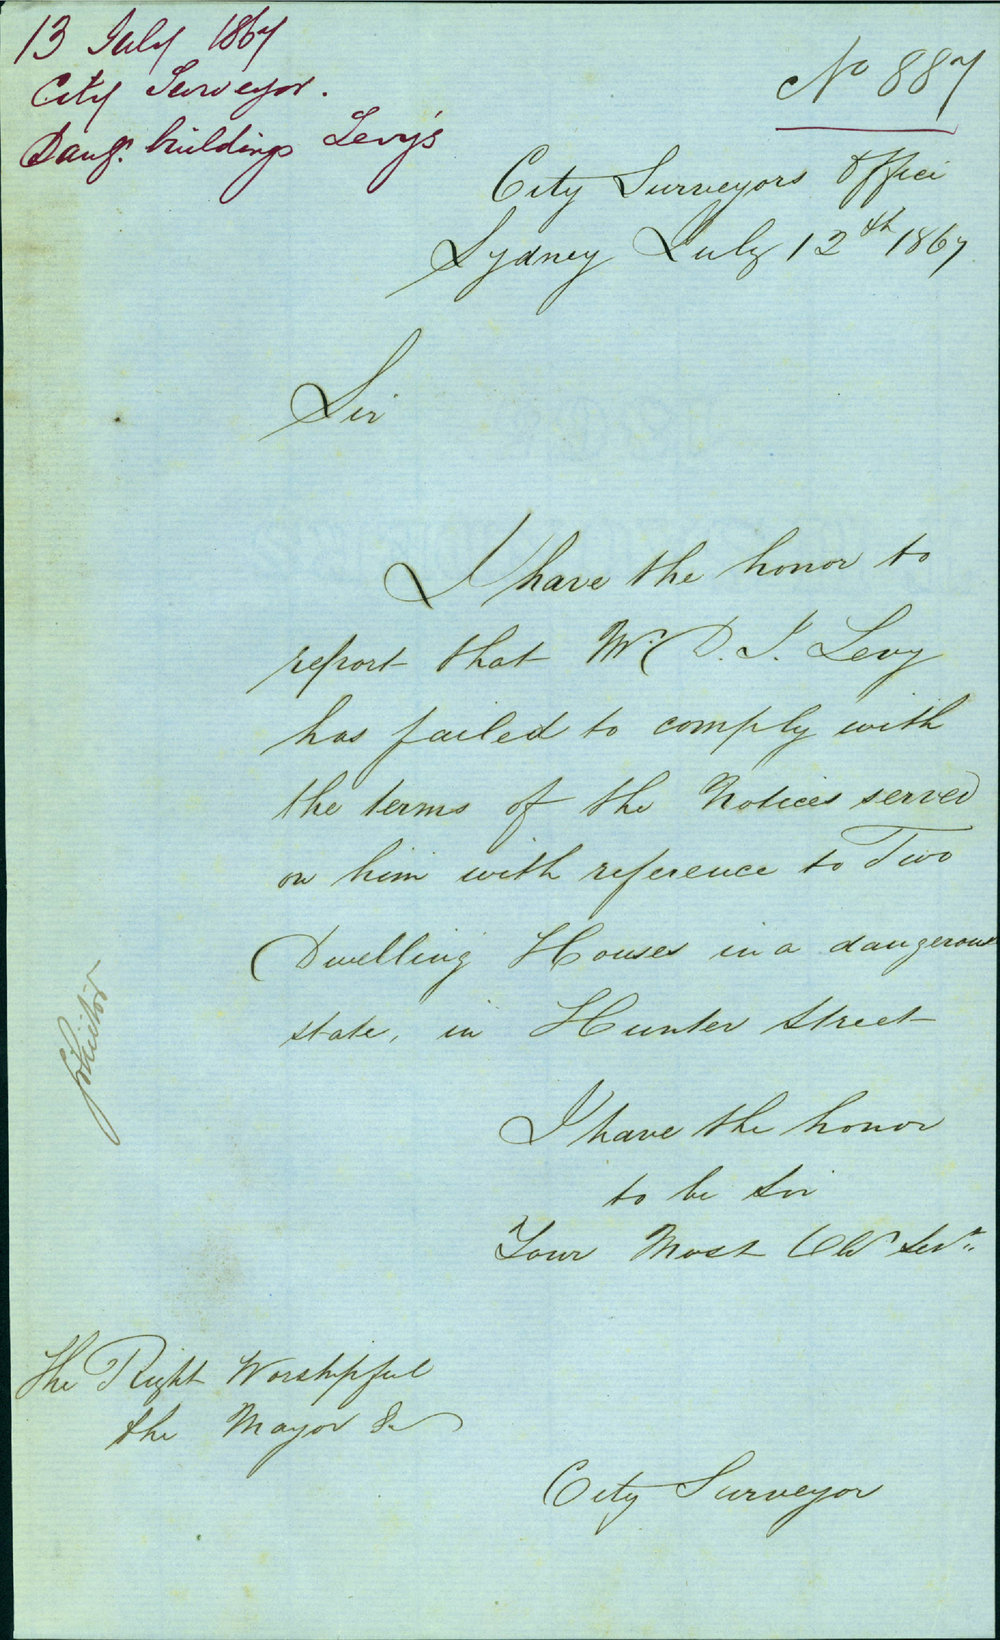 13 July 1867
City Surveyor.
Dangs. buildings Levy's
No 887
City Surveyors Office
Sydney July 12th 1867
Sir
I have the honor to
report that Mr. D. J. Levy
has failed to comply with
the terms of the Notices served
on him with reference to Two
Dwelling Houses in a dangerous
state, in Hunter Street
I have the honor
to be Sir
Your Most Obt Servt
Solicitor
The Right Worshipful
the Mayor &c
City Surveyor